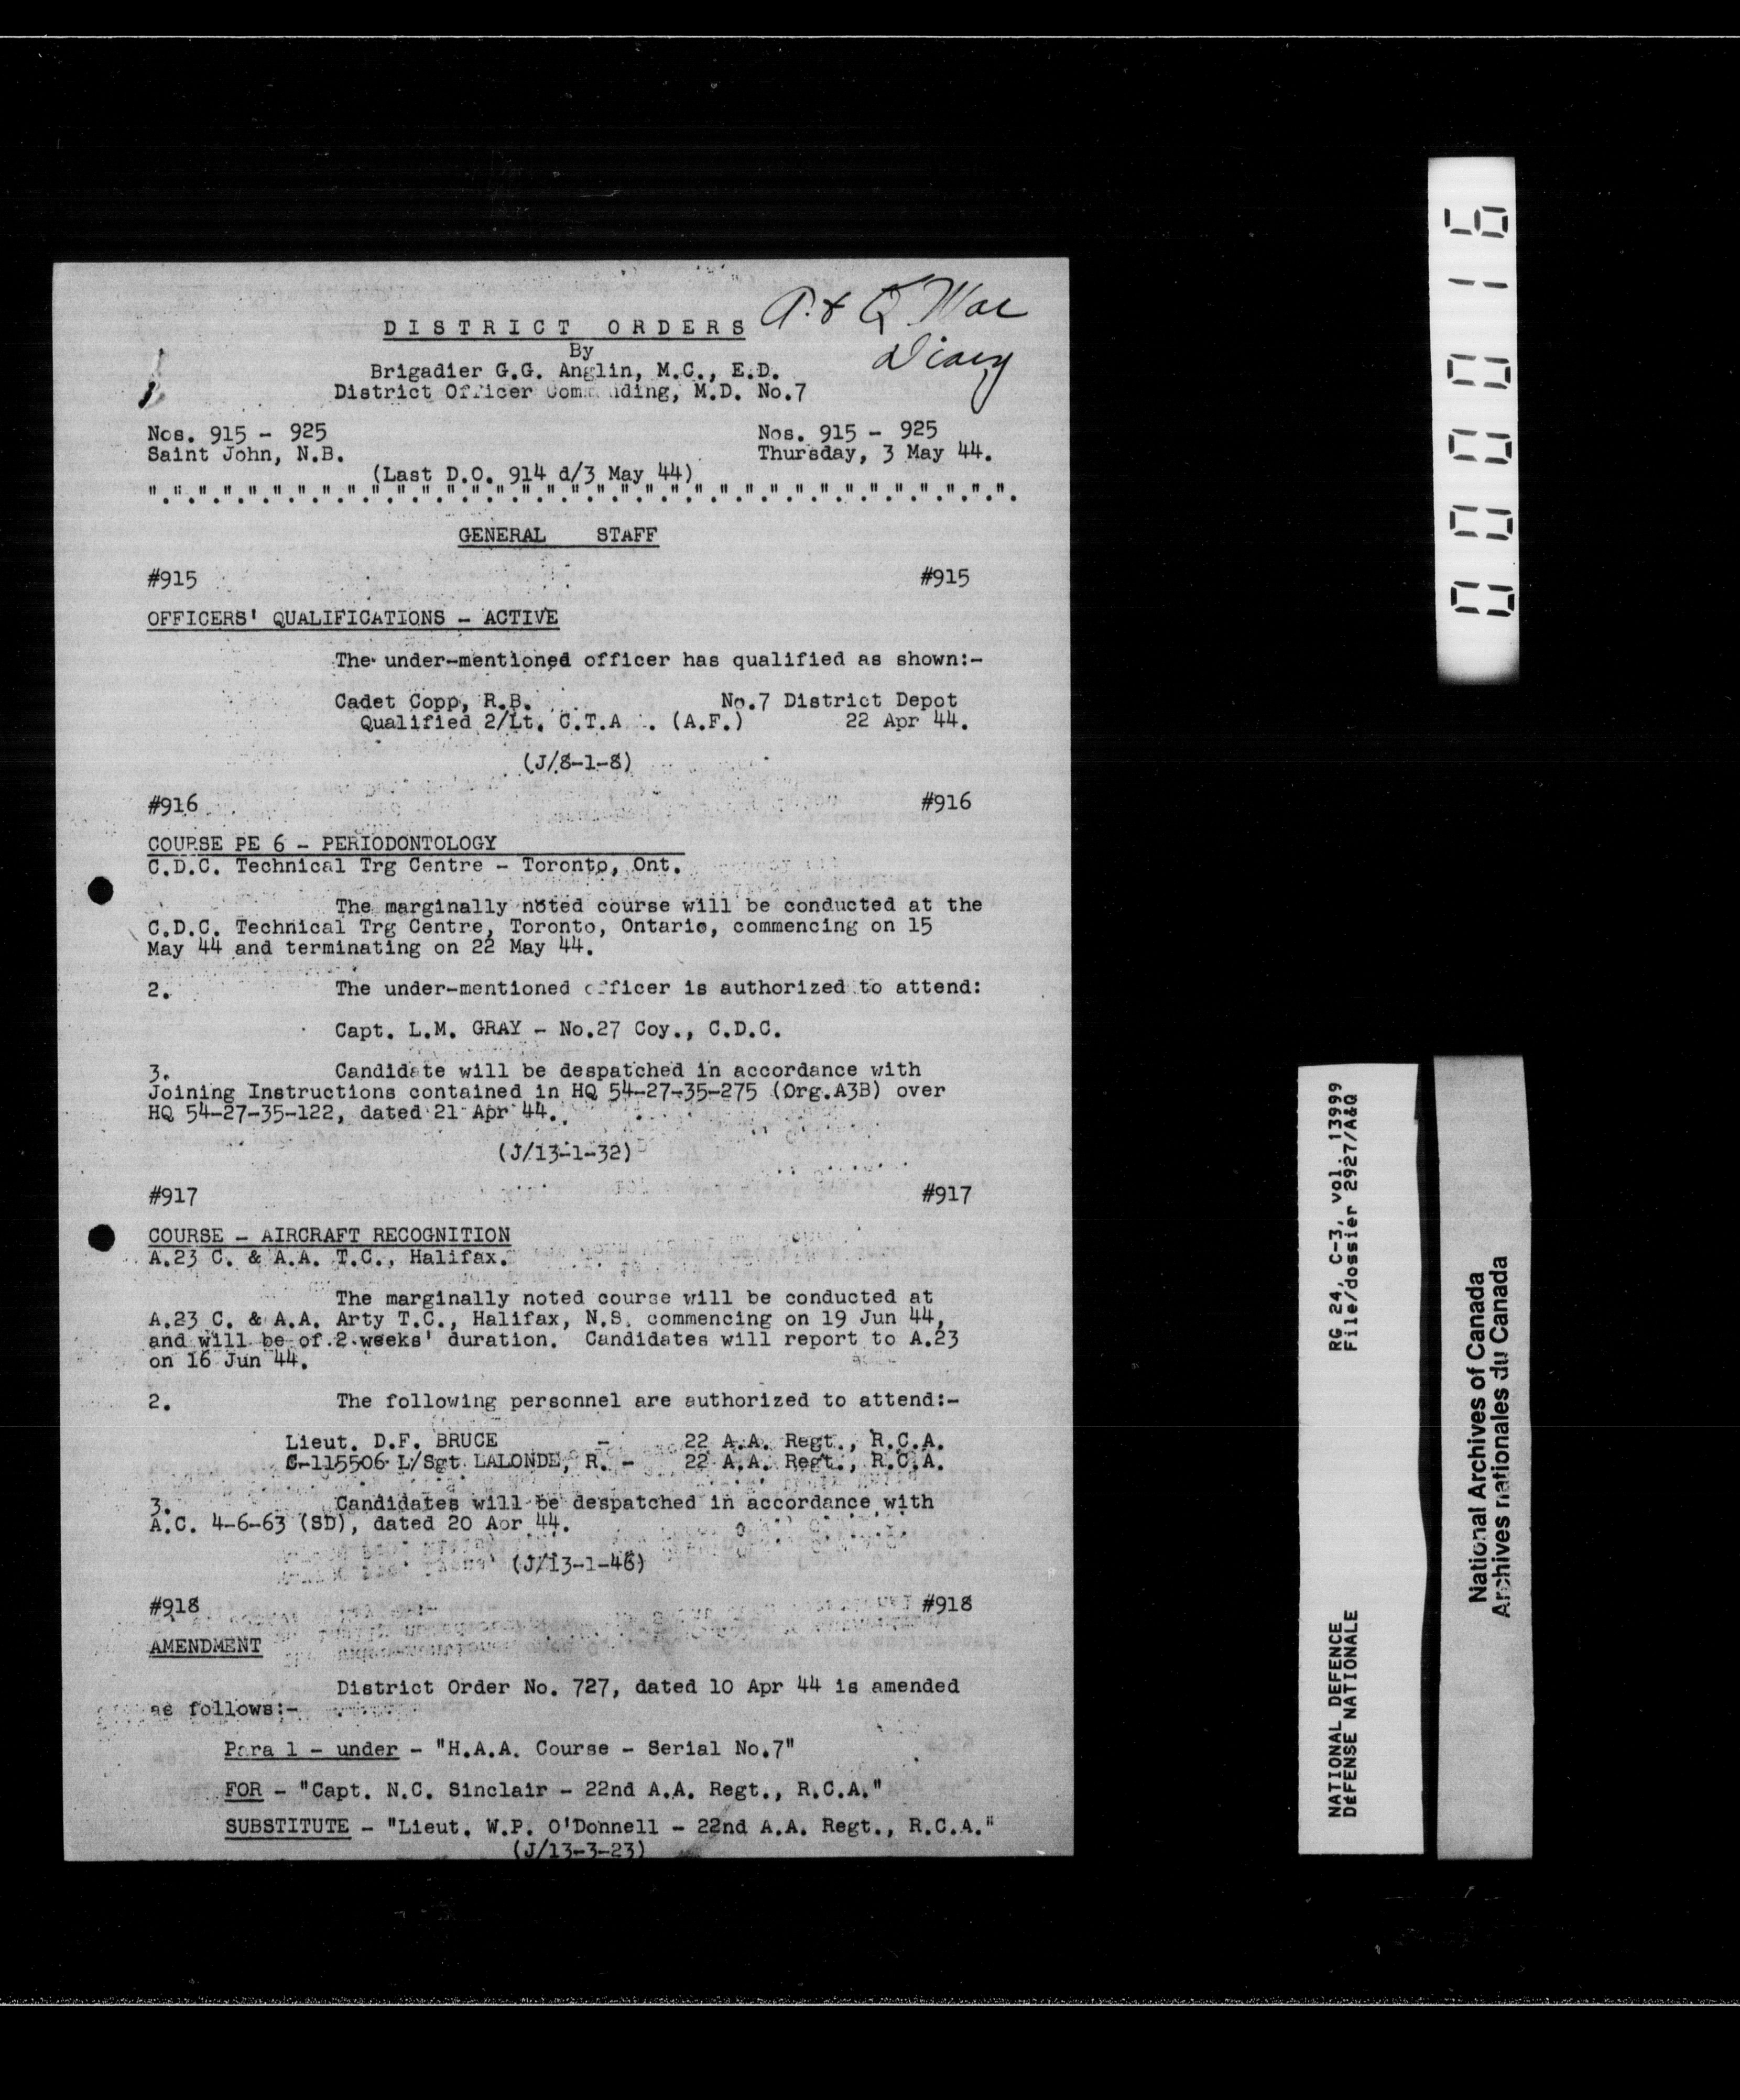 A. & Q. War
Diary
DISTRICT ORDERS
By
Brigadier G.G. Anglin, M.C., E.D.
District Officer Commanding, M.D. No.7
Nos. 915 - 925 Nos. 915 - 925
Saint John, N.B. Thursday, 3 May 44.
(Last D.O. 914 d/3 May 44)
".".".".".".".".".".".".".".".".".".".".".".".".".".".".".".".".".".".
GENERAL STAFF
#915 #915
OFFICERS' QUALIFICATIONS - ACTIVE
The under-mentioned officer has qualified as shown:-
Cadet Copp, R.B. No.7 District Depot
Qualified 2/Lt. C.T.A . (A.F.) 22 Apr 44.
(J/8-1-8)
#916 #916
COURSE PE 6 - PERIODONTOLOGY
C.D.C. Technical Trg Centre - Toronto, Ont.
The marginally noted course will be conducted at the
C.D.C. Technical Trg Centre, Toronto, Ontario, commencing on 15
May 44 and terminating on 22 May 44.
2. The under-mentioned officer is authorized to attend:
Capt. L.M. GRAY - No.27 Coy., C.D.C.
3. Candidate will be despatched in accordance with
Joining Instructions contained in HQ 54-27-35-275 (Org.A3B) over
HQ 54-27-35-122, dated 21 Apr 44.
(J/13-1-32)
#917 #917
COURSE - AIRCRAFT RECOGNITION
A.23 C. & A.A. T.C., Halifax.
The marginally noted course will be conducted at
A.23 C. & A.A. Arty T.C., Halifax, N.S. commencing on 19 Jun 44,
and will be of 2 weeks' duration. Candidates will report to A.23
on 16 Jun 44.
2. The following personnel are authorized to attend:-
Lieut. D.F. BRUCE - 22 A.A. Regt., R.C.A.
C-115506 L/Sgt LALONDE, R. - 22 A.A. Regt., R.C.A.
3. Candidates will be despatched in accordance with
A.C. 4-6-63 (SD), dated 20 Apr 44.
(J/13-1-46)
#918 #918
AMENDMENT
District Order No. 727, dated 10 Apr 44 is amended
as follows:-
Para 1 - under - "H.A.A. Course - Serial No.7"
FOR - "Capt. N.C. Sinclair - 22nd A.A. Regt., R.C.A."
SUBSTITUTE - "Lieut. W.P. O'Donnell - 22nd A.A. Regt., R.C.A."
(J/13-3-23)
000016
NATIONAL DEFENCE RG 24, C-3, vol. 13999
DÉFENSE NATIONALE File/dossier 2927/A&Q
National Archives of Canada
Archives nationales du Canada